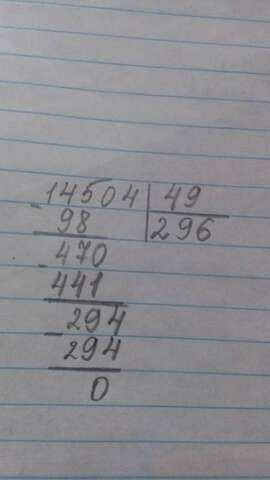 14504 49
- 98 296
470
- 441
294
- 294
0